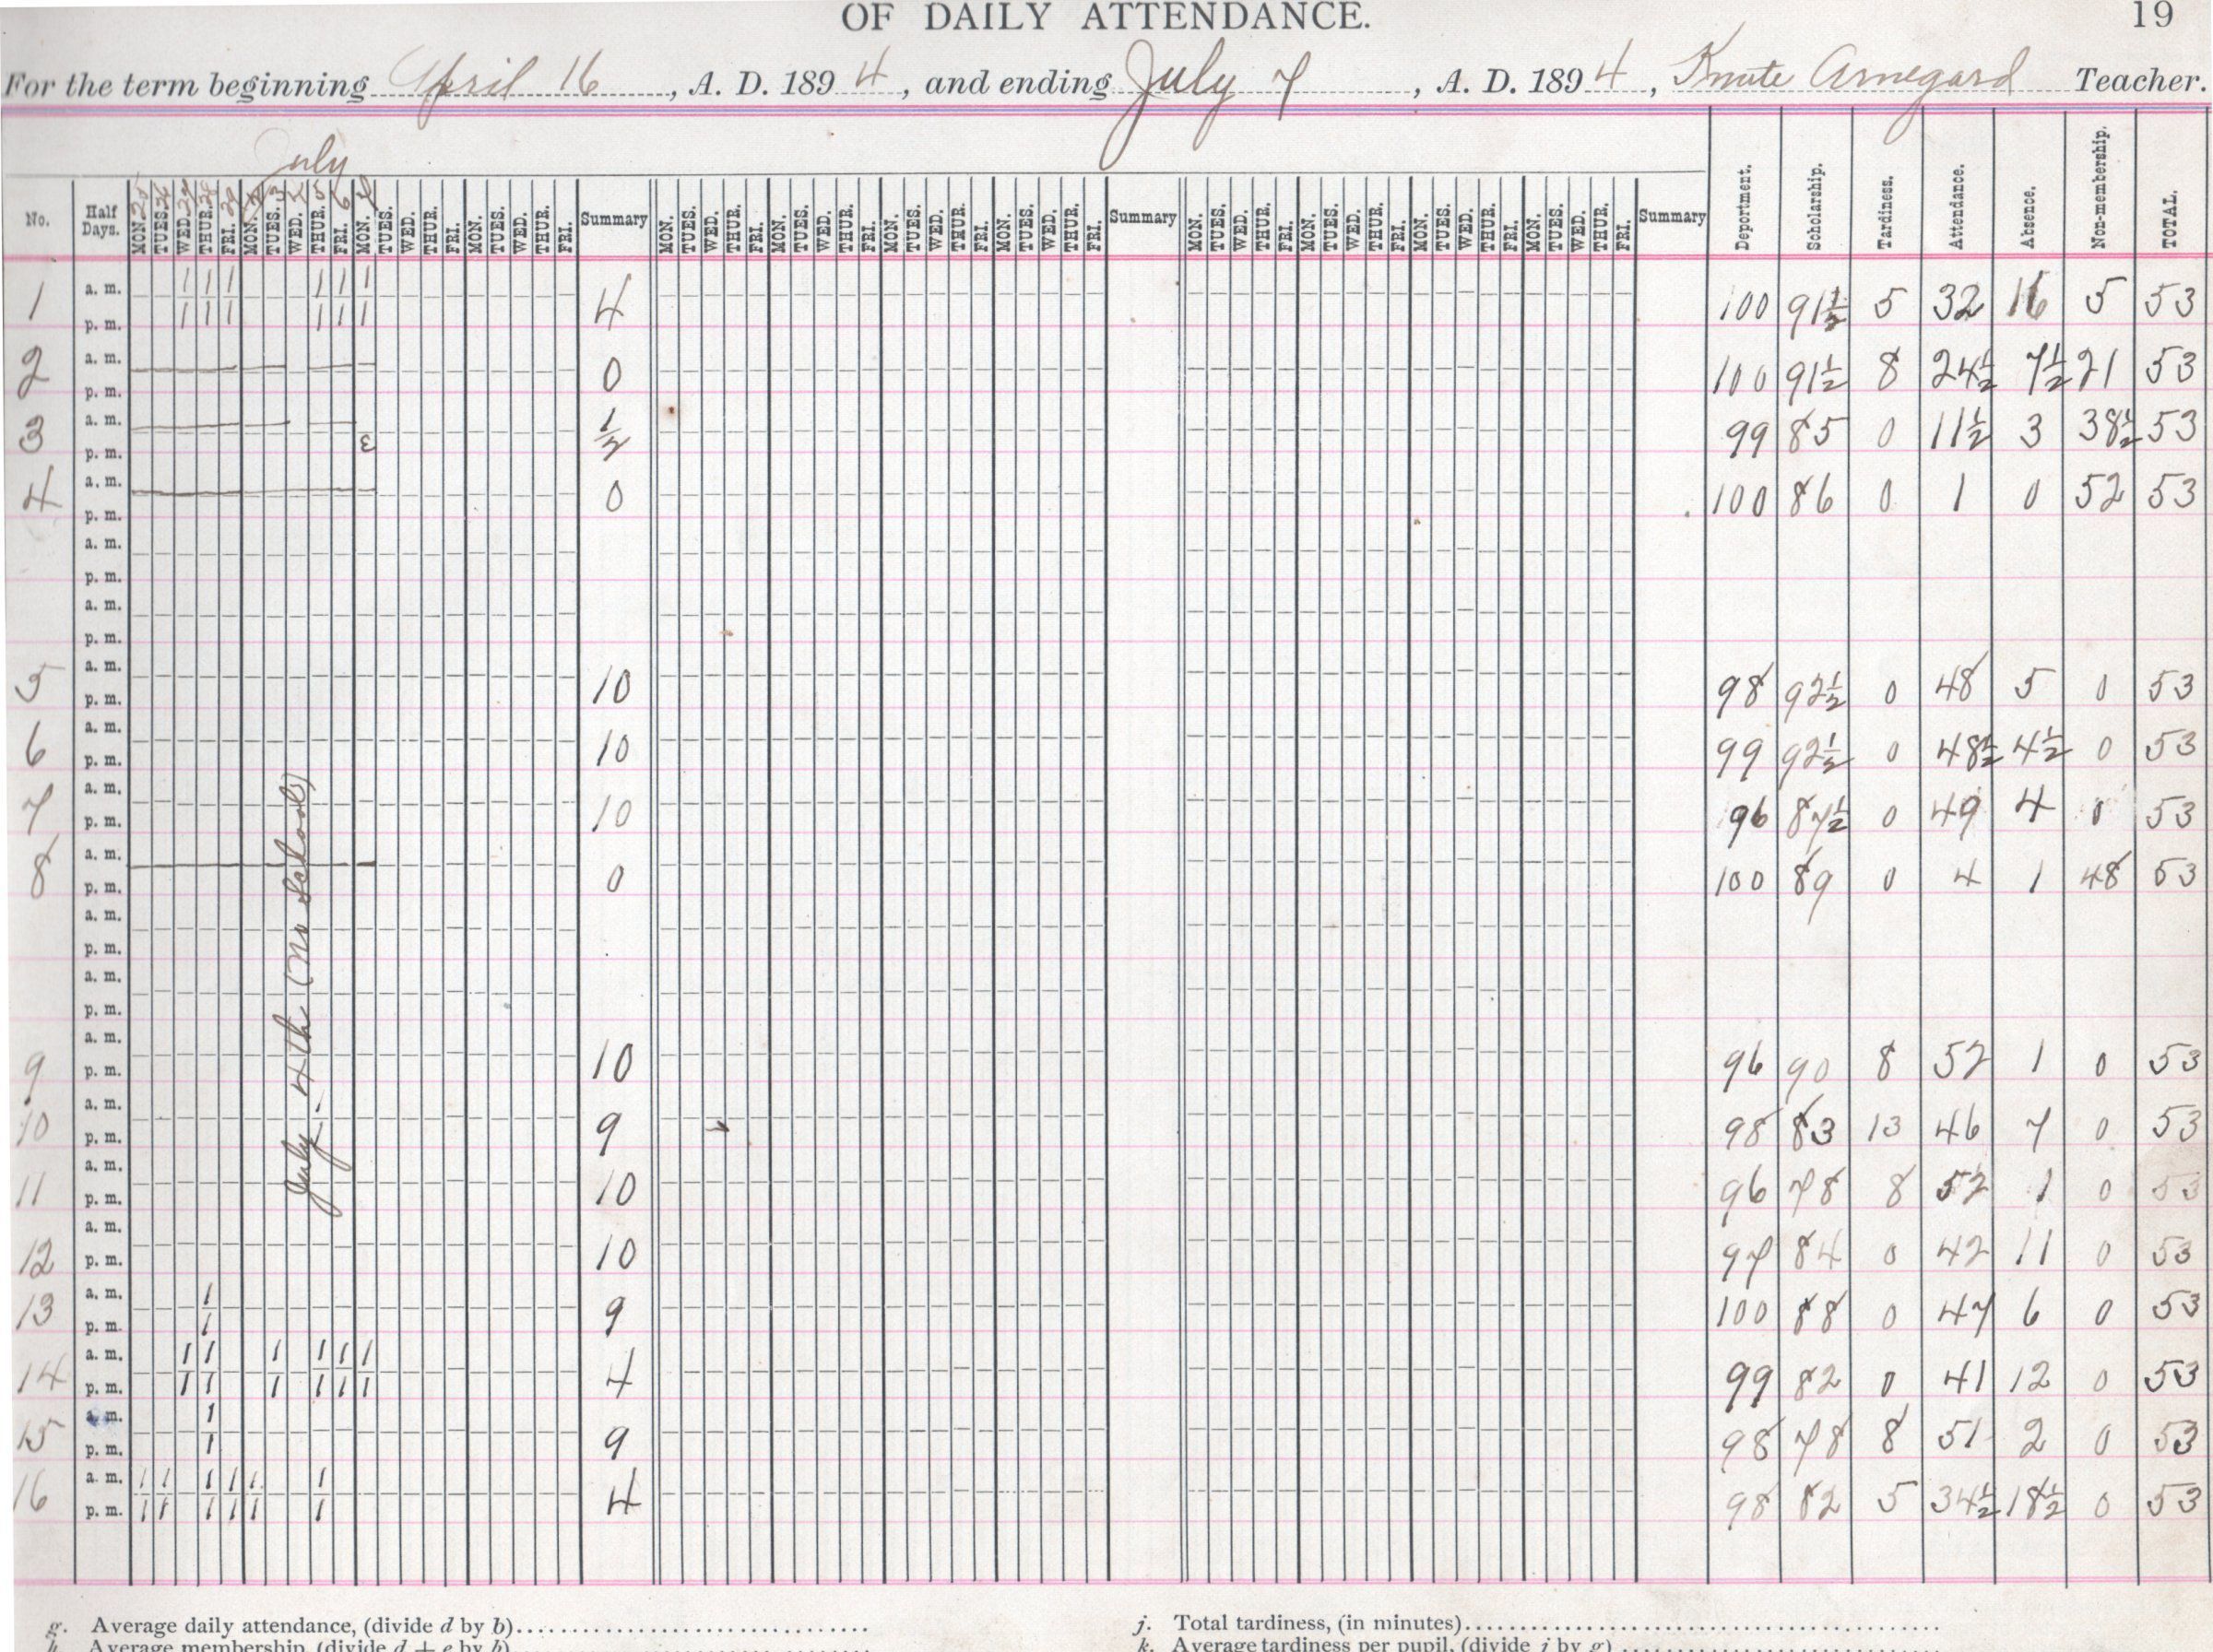 OF DAILY ATTENDANCE. 19
For the term beginning April 16, A. D. 1894, and ending July 7, A. D. 1894, Knute Arnegard Teacher.
July
No. Half Days. MON. 25 TUES. 26 WED. 27 THUR. 28 FRI. 29 MON. TUES. 3 WED. THUR. 5 FRI. 6 MON. TUES. WED. THUR. FRI. MON. TUES. WED. THUR. FRI. Summary MON. TUES. WED. THUR. FRI. MON. TUES. WED. THUR. FRI. MON. TUES. WED. THUR. FRI. MON. TUES. WED. THUR. FRI. Summary MON. TUES. WED. THUR. FRI. MON. TUES. WED. THUR. FRI. MON. TUES. WED. THUR. FRI. MON. TUES. WED. THUR. FRI. Summary Deportment. Scholarship. Tardiness. Attendance. Absence. Non-membership. TOTAL.
1 a. m. 1 1 1 1 1 1
p. m. 1 1 1 1 1 1 4 100 91½ 5 32 16 5 53
2 a. m.
p. m. 0 100 91½ 8 24½ 7½ 21 53
3 a. m.
p. m. ε ½ 99 85 0 11½ 3 38½ 53
4 a. m.
p. m. 0 100 86 0 1 0 52 53
a. m.
p. m.
a. m.
p. m.
5 a. m.
p. m. 10 98 92½ 0 48 5 0 53
6 a. m.
p. m. 10 99 92½ 0 48½ 4½ 0 53
7 a. m.
p. m. 10 96 87½ 0 49 4 0 53
8 a. m.
p. m. 0 100 89 0 4 1 48 53
a. m.
p. m.
a. m.
p. m.
July 4th (No School)
9 a. m.
p. m. 10 96 90 8 52 1 0 53
10 a. m.
p. m. 9 98 83 13 46 7 0 53
11 a. m.
p. m. 10 96 78 8 52 1 0 53
12 a. m.
p. m. 10 97 84 0 42 11 0 53
13 a. m. 1
p. m. 1 9 100 88 0 47 6 0 53
14 a. m. 1 1 1 1 1 1
p. m. 1 1 1 1 1 1 4 99 82 0 41 12 0 53
15 a. m. 1
p. m. 1 9 98 78 8 51 2 0 53
16 a. m. 1 1 1 1 1 1
p. m. 1 1 1 1 1 1 4 98 82 5 34½ 18½ 0 53
g. Average daily attendance, (divide d by b)
j. Total tardiness, (in minutes)
h. Average membership, (divide d + e by b)
k. Average tardiness per pupil, (divide j by g)